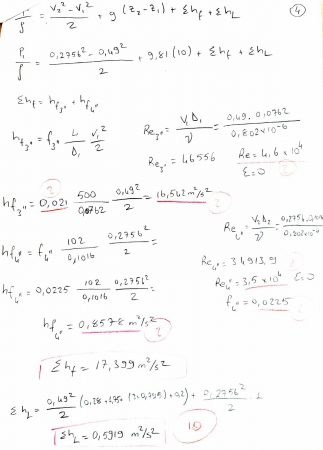 P₁/ρ = (V₂² - V₁²)/2 + g (z₂ - z₁) + Σhf + ΣhL
④
P₁/ρ = (0,2756² - 0,49²)/2 + 9,81 (10) + Σhf + ΣhL
Σhf = hf₃" + hf₄"
hf₃" = f₃" L/D₁ V₁²/2
Re₃" = V₁D₁/ν = 0,49 · 0,0762 / 0,802x10⁻⁶
Re₃" = 46556 Re = 4,6 x 10⁴
ε=0
2
hf₃" = 0,021 500/0,0762 0,49²/2 = 16,542 m²/s²
2
hf₄" = f₄" 102/0,1016 0,2756²/2 =
Re₄" = V₂D₂/ν = 0,2756 · / 0,802x10⁻⁶
Re₄" = 34913,9
Re₄" = 3,5 x 10⁴ ε=0
hf₄" = 0,0225 102/0,1016 0,2756²/2 =
f₄" = 0,0225
2
hf₄" = 0,8578 m²/s²
2
Σhf = 17,399 m²/s²
ΣhL = 0,49²/2 ( + 0,2756²/2 · 1
ΣhL = 0,5919 m²/s²
10